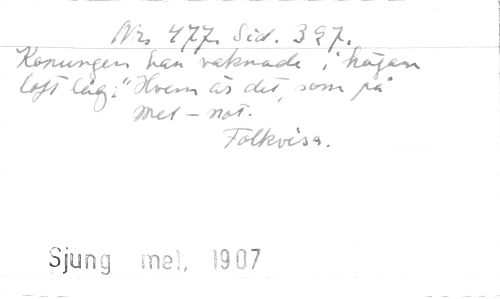 Nr. 477. Sid. 397.
Konungen han vaknade, i högan
loft låg: "Hvem är det, som på
Mel-not.
Folkvisa.
Sjung mel, 1907